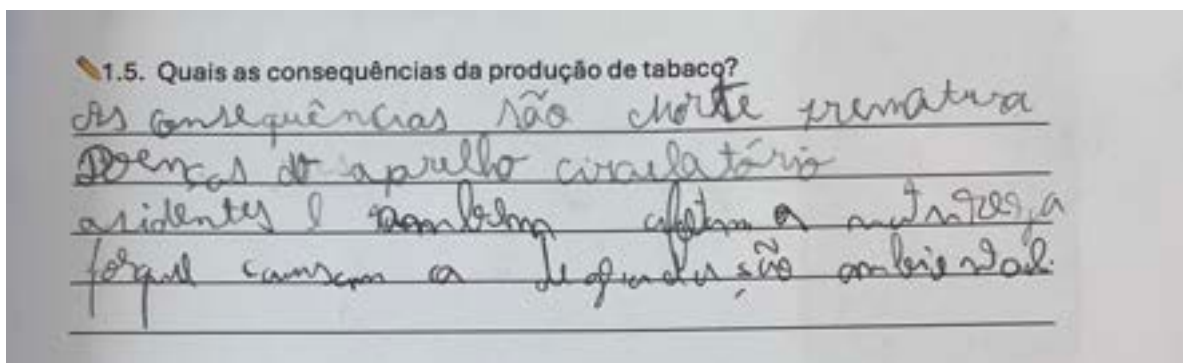 1.5. Quais as consequências da produção de tabaco?
As consequências são morte prematura
Doenças do aprelho circulatório
asidentes e tambem afetam a natureza
porque causam a degradação ambiental.